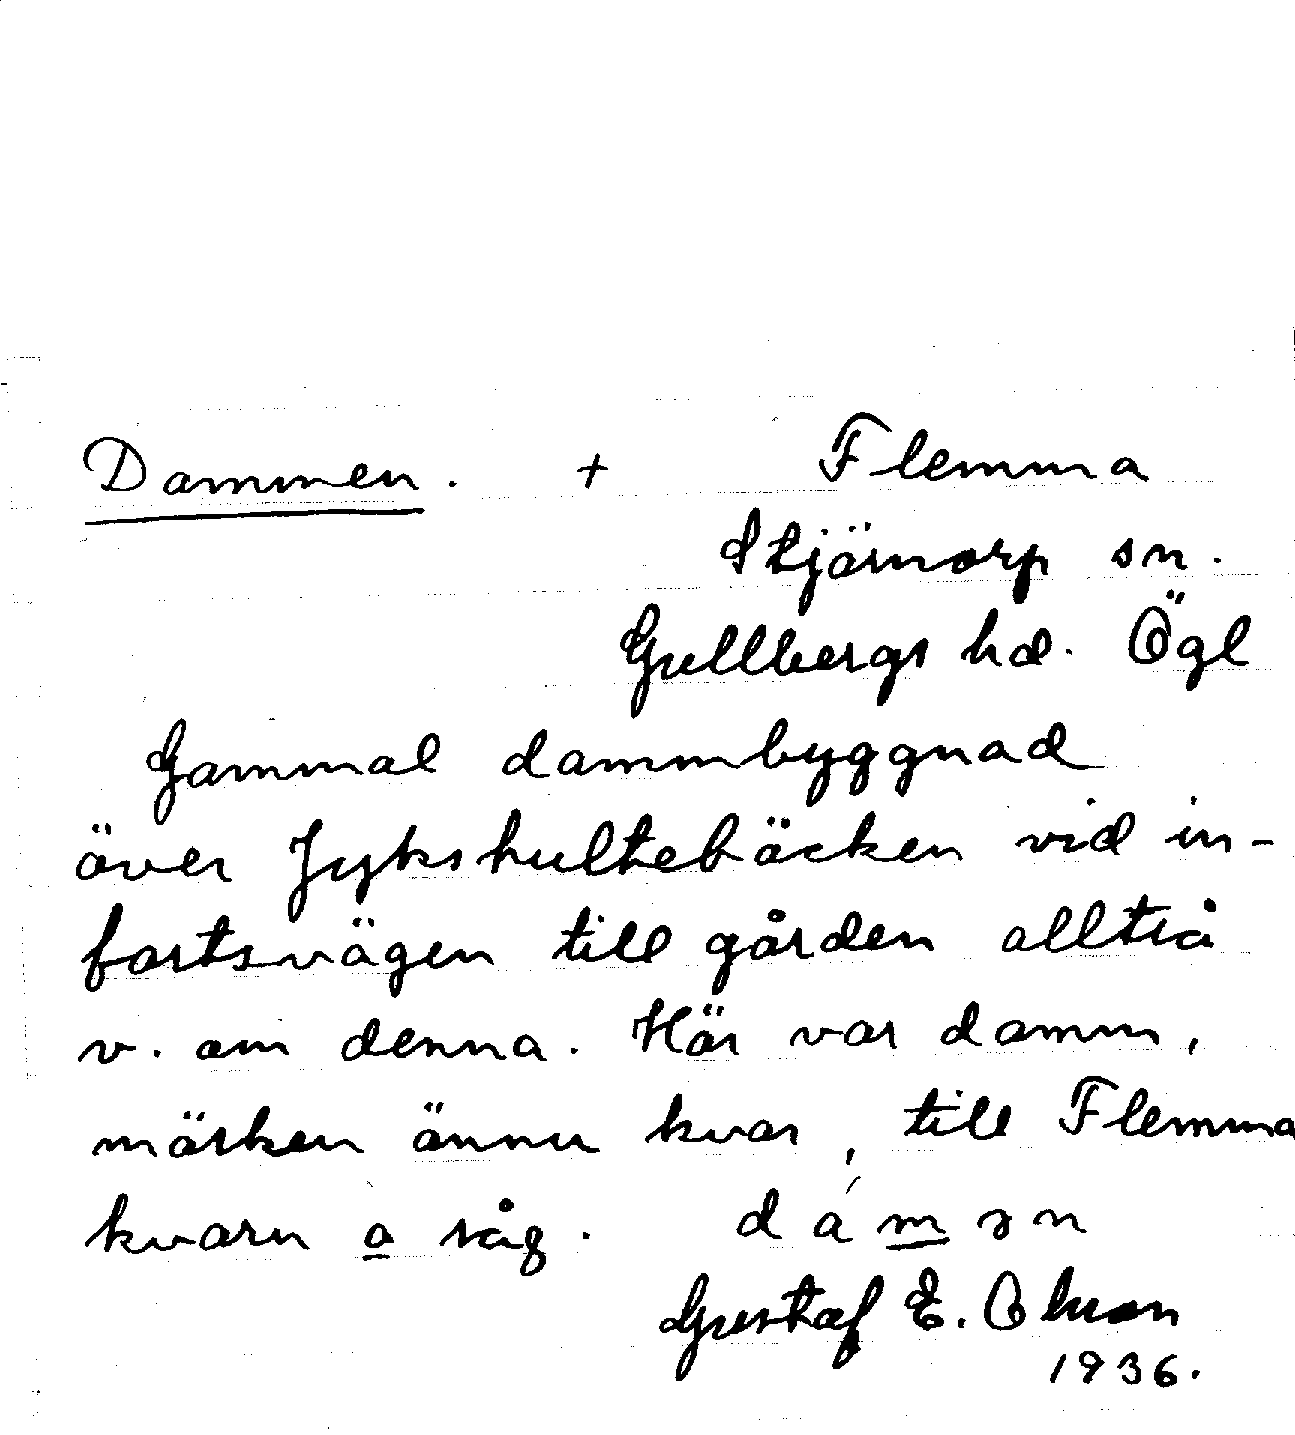 Dammen. + Flemma
Stjärnorp sn.
Gullbergs hd. Ögl
Gammal dammbyggnad
över Jykshultebäcken vid in-
fartsvägen till gården alltså
v. om denna. Här var damm,
märken ännu kvar, till Flemma
kvarn o såg. dámən
Gustaf E. Olsson
1936.